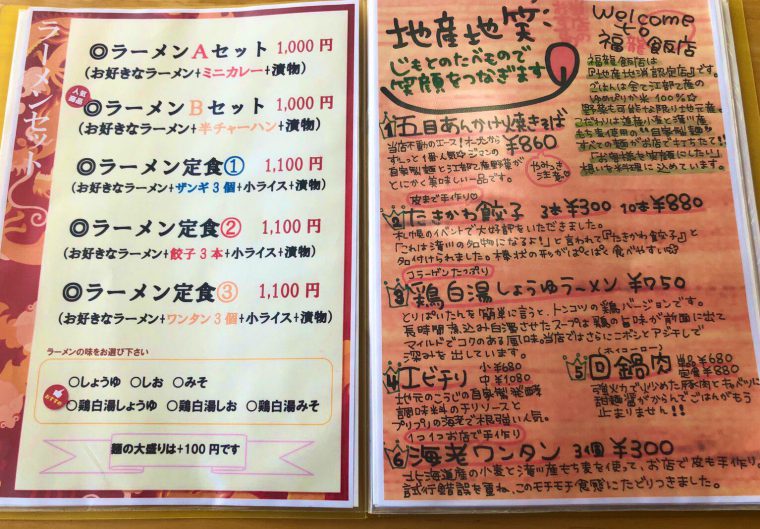 ラーメンセット
◎ラーメンAセット 1,000円
(お好きなラーメン+ミニカレー+漬物)
人気商品
◎ラーメンBセット 1,000円
(お好きなラーメン+半チャーハン+漬物)
◎ラーメン定食① 1,100円
(お好きなラーメン+ザンギ3個+小ライス+漬物)
◎ラーメン定食② 1,100円
(お好きなラーメン+餃子3本+小ライス+漬物)
◎ラーメン定食③ 1,100円
(お好きなラーメン+ワンタン3個+小ライス+漬物)
ラーメンの味をお選び下さい
○しょうゆ ○しお ○みそ
○鶏白湯しょうゆ ○鶏白湯しお ○鶏白湯みそ
麺の大盛りは+100円です
地産地笑
じもとのたべもので
笑顔をつなぎます
Welcome
to
福龍飯店
福龍飯店は
『地産地消認定店』です。
ごはんは全て江部乙産の
ゆめぴりか米100%☆
野菜も可能な限り地元産。
こだわりは道産小麦と滝川産
もち麦使用の"自家製麺"
すべての麺がお店で打ちたて!!
「お客様を笑顔にしたい」
想いを料理に込めています。
1 五目あんかけ焼きそば
¥860
当店不動のエース!オープンから
ずーっと1番人気☆
自家製麺と江部乙産野菜が
とにかく美味しい一品です。
やみつき
注意
皮まで手作り
2 たきかわ餃子 3本¥300 10本¥880
札幌のイベントで大好評をいただきました。
「これは滝川の名物になるよ!」と言われて『たきかわ餃子』と
名付けられました。棒状の形がぱくぱく食べやすい☆
コラーゲンたっぷり
3 鶏白湯しょうゆラーメン ¥750
とりぱいたんを簡単に言うと、トンコツの鶏バージョンです。
長時間煮込み白濁させたスープは鶏の旨味が前面に出て
マイルドでコクのある風味。当店ではさらにニボシとアジ干しで
深みを出しています。
4 エビチリ 小¥680
中¥1080
地元のこうじの自家製発酵
調味料のチリソースと
プリプリの海老で根強い人気。
5 回鍋肉 単品¥680
(ホイコーロー)
定食¥880
強火力で炒めた豚肉とキャベツに
甜麺醤がからんでごはんがもう
止まりません!!
1つ1つお店で手作り
6 海老ワンタン 3個¥300
北海道産の小麦と滝川産もち麦を使って、お店で皮も手作り。
試行錯誤を重ね、このモチモチ食感にたどりつきました。